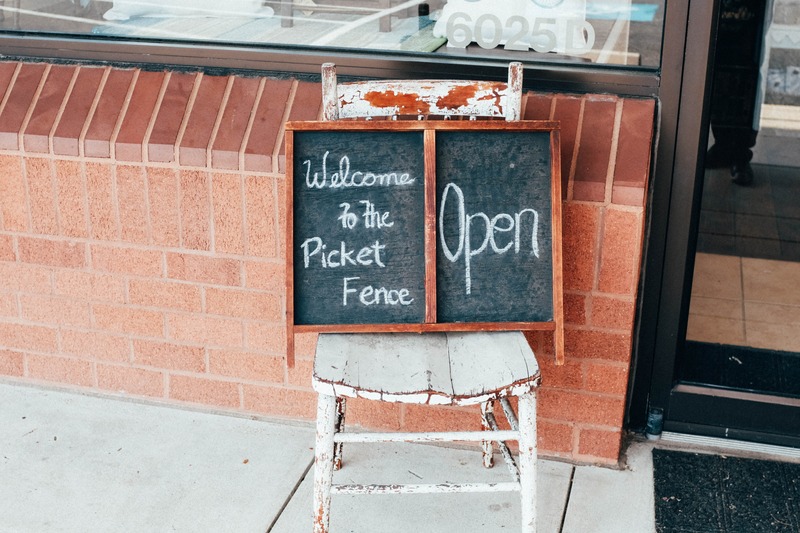 6025D
Welcome
to the
Picket
Fence
Open